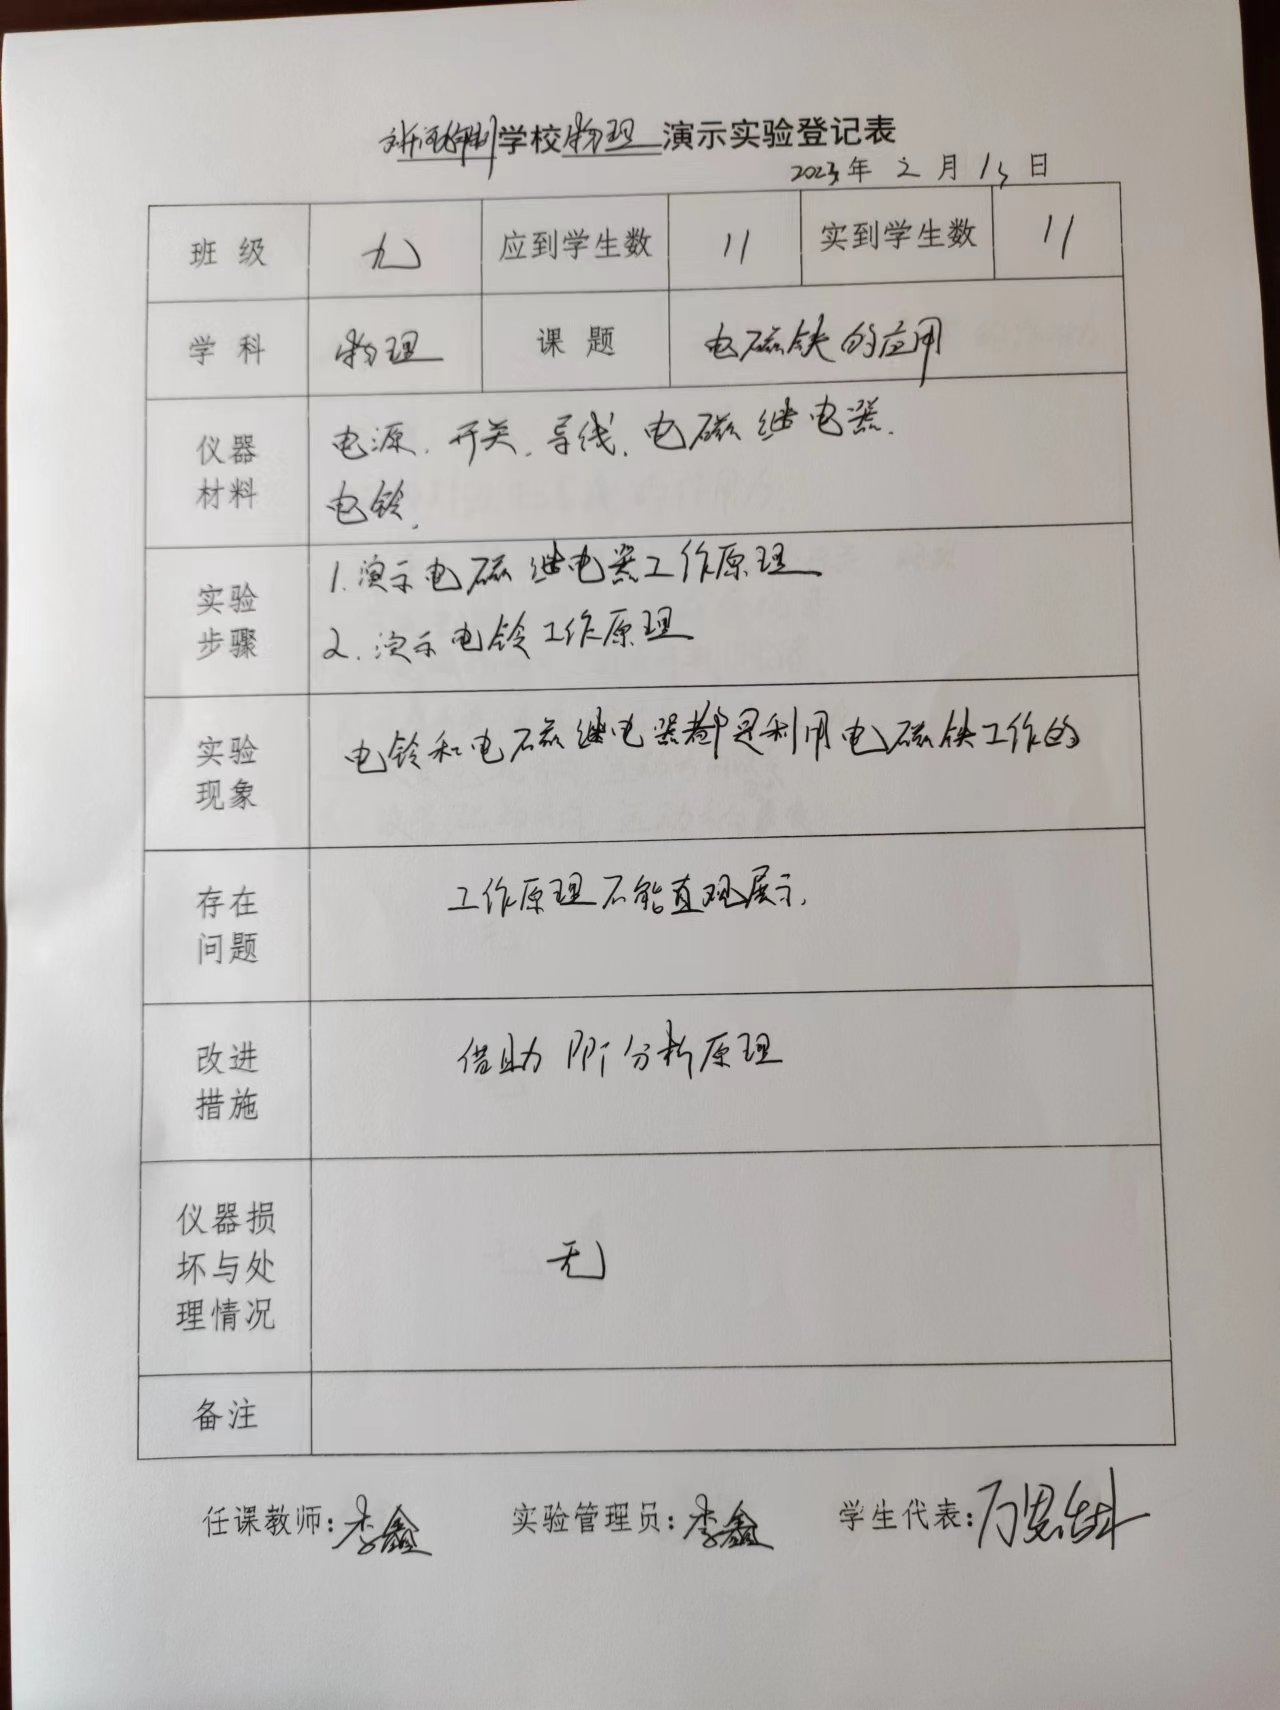 学校物理演示实验登记表
2023年2月13日
班级 九 应到学生数 11 实到学生数 11
学科 物理 课题 电磁铁的应用
仪器材料
电源、开关、导线、电磁继电器、
电铃、
实验步骤
1.演示电磁继电器工作原理
2.演示电铃工作原理
实验现象
电铃和电磁继电器都是利用电磁铁工作的
存在问题
工作原理不能直观展示.
改进措施
借助PPT分析原理
仪器损坏与处理情况
无
备注
任课教师:李鑫 实验管理员:李鑫 学生代表: